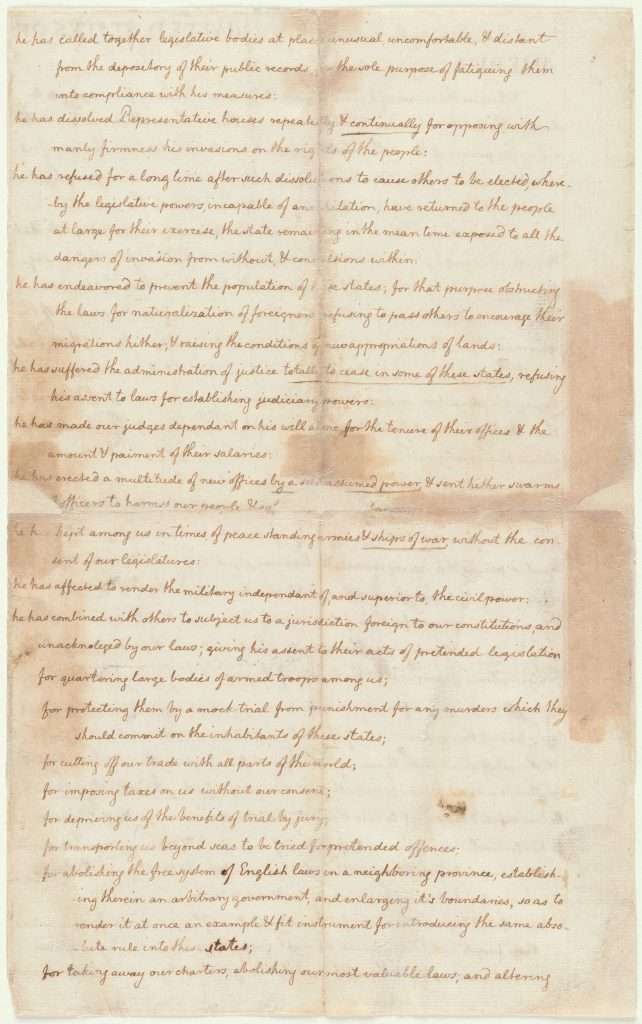 he has called together legislative bodies at places unusual, uncomfortable, & distant
from the depository of their public records for the sole purpose of fatiguing them
into compliance with his measures:
he has dissolved Representative houses repeatedly & continually for opposing with
manly firmness his invasions on the rights of the people:
he has refused for a long time after such dissolutions to cause others to be elected, where-
-by the legislative powers, incapable of annihilation, have returned to the people
at large for their exercise, the state remaining in the mean time exposed to all the
dangers of invasion from without, & convulsions within:
he has endeavored to prevent the population of these states; for that purpose obstructing
the laws for naturalization of foreigners, refusing to pass others to encourage their
migrations hither; & raising the conditions of new appropriations of lands:
he has suffered the administration of justice totally to cease in some of these states, refusing
his assent to laws for establishing judiciary powers:
he has made our judges dependant on his will alone, for the tenure of their offices & the
amount & paiment of their salaries:
he has erected a multitude of new offices by a self-assumed power, & sent hither swarms
of officers to harrass our people &
he has kept among us in times of peace standing armies & ships of war, without the con-
sent of our legislatures:
he has affected to render the military independant of, and superior to, the civil power:
he has combined with others to subject us to a jurisdiction foreign to our constitutions, and
unacknoleged by our laws; giving his assent to their acts of pretended legislation
for quartering large bodies of armed troops among us;
for protecting them by a mock-trial from punishment for any murders which they
should commit on the inhabitants of these states;
for cutting off our trade with all parts of the world;
for imposing taxes on us without our consent;
for depriving us of the benefits of trial by jury;
for transporting us beyond seas to be tried for pretended offences:
for abolishing the free system of English laws in a neighboring province, establish-
ing therein an arbitrary government, and enlarging it's boundaries, so as to
render it at once an example & fit instrument for introducing the same abso-
-lute rule into these states;
for taking away our charters, abolishing our most valuable laws, and altering